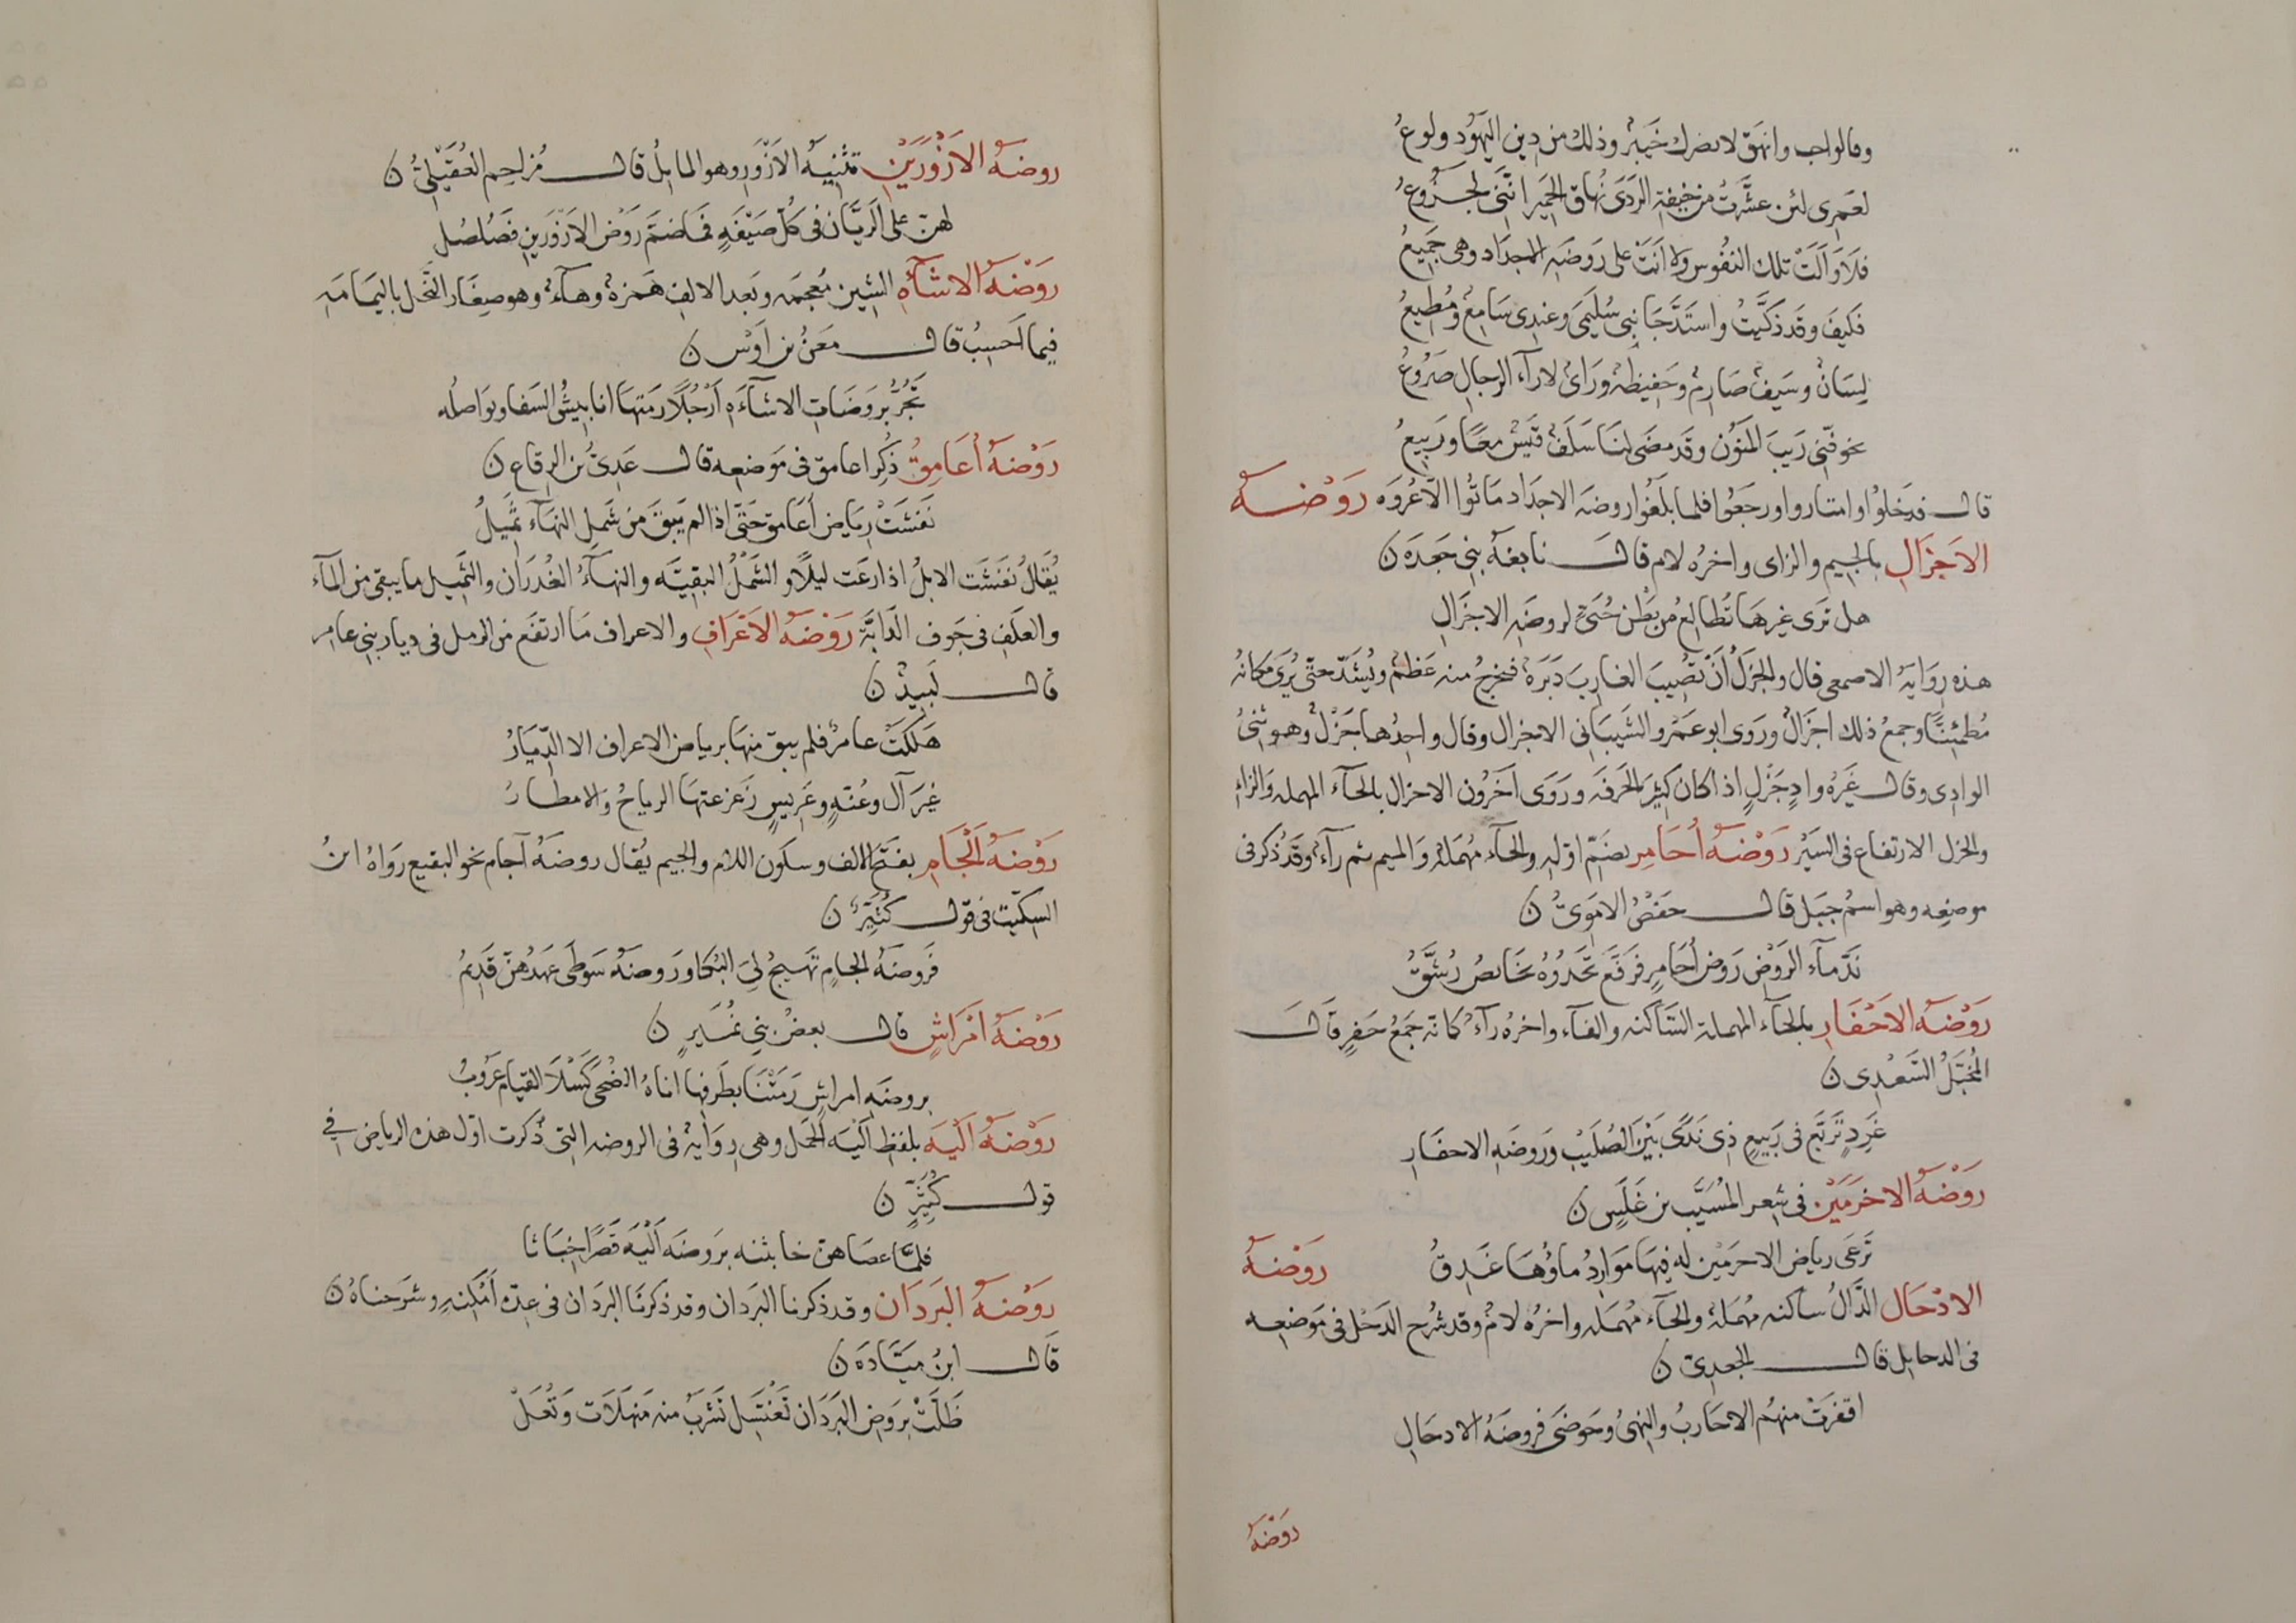 وقالوا حب وانهق لا يضرك خيبر وذلك من دين اليهود ولوع
لعمري لئن عشرت من خيفة الردى نهاق الحمير انني لجزوع
فلا والت تلك النفوس ولا اتت على روضة الاجداد وهي جميع
فكيف وقد ذكيت واشتد جانبي سليمى وعندي سامع ومطيع
لسان وسيف صارم وحفيظة ورأى لآراء الرجال صروع
تخوفني ريب المنون وقد مضى لنا سلف قيس معا وربيع
قال فدخلوا وامتاروا ورجعوا فلما بلغوا روضة الاجداد ماتوا الا عروه روضة
الاجزال بالجيم والزاى واخره لام قال نابغة بني جعدة ن
هل ترى غيرها تطالع من بطن حبي لروضة الاجزال
هذه رواية الاصمعي قال والجزل ان تصيب الغارب دبرة فيخرج منه عظم ويشد حتى يرى مكانه
مطمئنا وجمع ذلك اجزال وروى ابو عمرو الشيباني الاجزال وقال واحدها جزل وهو شئ
الوادي وقال غيره واد جزل اذا كان كثير الجرفة وروى اخرون الاحزال بالحاء المهملة والزاء
والحزل الارتفاع في السير روضة أحامر بضم اوله والحاء مهملة والميم ثم راء وقد ذكر في
موضعه وهو اسم جبل قال حفص الاموي ن
ندماء الروض روض أحامر فرقع تحدوه نحائص رشق
روضة الاحفار بالحاء المهملة الساكنه والفاء واخره راء كانه جمع حفر قال
المخبل السعدي ن
غرد تربع في ربيع ذي ندى بين الصليب وروضة الاحفار
روضة الاخرمين في شعر المسيب بن علس ن
ترعى رياض الاخرمين له فيها موارد ماؤها غدق روضة
الادحال الدال ساكنه مهملة والحاء مهمله واخره لام وقد شرح الدحل في موضعه
في الدحايل قال الجعدي ن
اقفرت منهم الاحارب والنهى وحوضى فروضة الادحال
روضة
روضة الازورين تثنية الازور وهو المايل قال مزاحم العقيلي ن
لهن على الريان في كل صيفة فما ضم روض الازورين فصلصل
روضة الاشآه الشين معجمه وبعد الالف همزة وهاء وهو صغار النخل باليمامة
فيما احسب قال معن بن اوس ن
تجر بروضات الاشاءة ارجلا رمتها انابيش السفا ونواصله
روضة أعامق ذكر اعامق في موضعه قال عدي بن الرقاع ن
نفشت رياض أعامق حتى اذا لم يبق من شمل النهاء ثميل
يقال نفشت الابل اذا رعت ليلا والشمل البقية والنهاء الغدران والثميل ما يبقى من الماء
والعلف في جوف الدابة روضة الاعراف والاعراف ما ارتفع من الرمل في ديار بني عامر
قال لبيد ن
هلكت عامر فلم يبق منها برياض الاعراف الا الديار
غير آل وعنة وعريس زعزعتها الرياح والامطار
روضة ألجام بفتح الالف وسكون اللام والجيم يقال روضة آجام نحو البقيع رواه ابن
السكيت في قول كثير ن
فروضة الجام تهيج لي البكا وروضة سوطى عهدهن قديم
روضة امراش قال بعض بني نمير ن
بروضة امراش رمتنا بطرفها اناة الضحى كسلا القيام عروب
روضة ألية بلفظ الية الحمل وهي رواية في الروضه التي ذكرت اول هذه الرياض في
قول كثير ن
فلما عصاهن خابثنه بروضة ألية قصرا خباثا
روضة البردان وقد ذكرنا البردان وقد ذكرنا البردان في عدة أمكنة وشرحناه ن
قال ابن ميادة ن
ظلت بروض البردان تغتسل تشرب منه منهلات وتعل